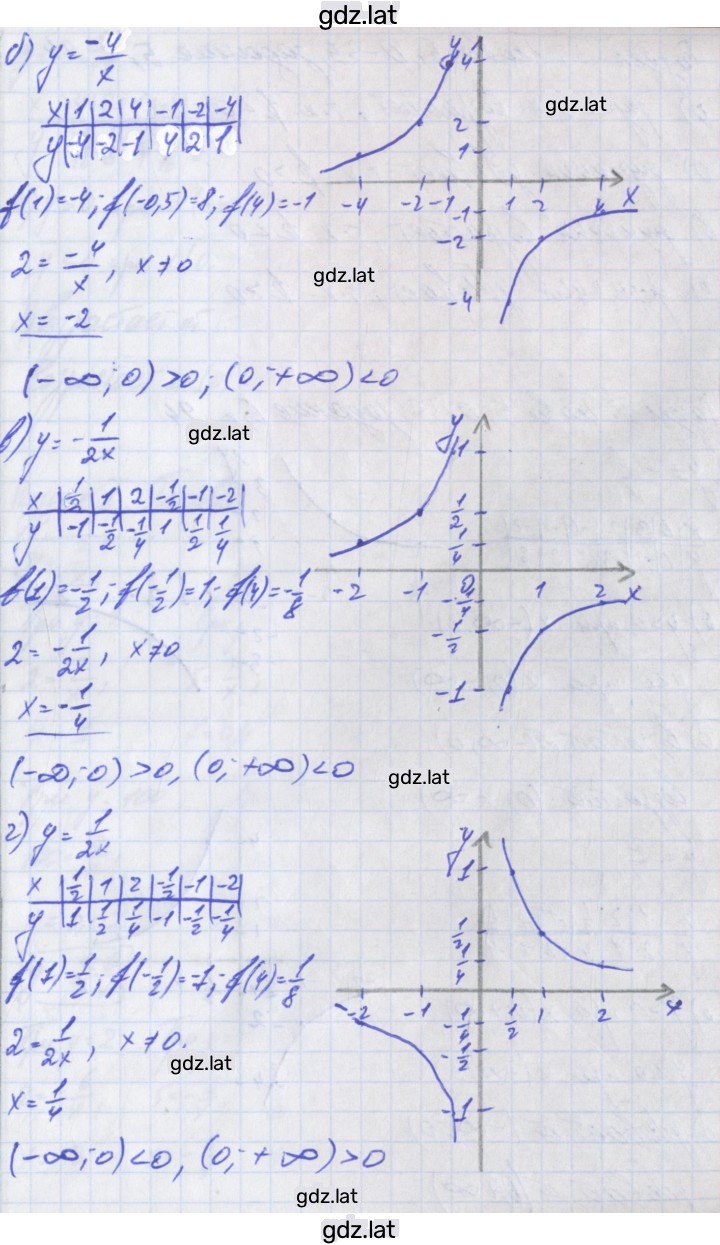 gdz.lat
б) y = -4/x
x | 1 | 2 | 4 | -1 | -2 | -4
y | -4 | -2 | -1 | 4 | 2 | 1
f(1)=-4; f(-0,5)=8; f(4)=-1
2 = -4/x, x≠0
x = -2
(-∞; 0) >0; (0; +∞) <0
y
4
2
1
-4 -2 -1 1 2 4 x
-1
-2
-4
gdz.lat
gdz.lat
в) y = -1/2x
x | 1/2 | 1 | 2 | -1/2 | -1 | -2
y | -1 | -1/2 | -1/4 | 1 | 1/2 | 1/4
f(1)=-1/2; f(-1/2)=1; f(4)=-1/8
2 = -1/2x, x≠0
x = -1/4
(-∞; 0) >0, (0; +∞) <0
y
1
1/2
1/4
-2 -1 0 1 2 x
-1/4
-1/2
-1
gdz.lat
gdz.lat
г) y = 1/2x
x | 1/2 | 1 | 2 | -1/2 | -1 | -2
y | 1 | 1/2 | 1/4 | -1 | -1/2 | -1/4
f(1)=1/2; f(-1/2)=-1; f(4)=1/8
2 = 1/2x, x≠0.
x = 1/4
(-∞; 0) <0, (0; +∞) >0
y
1
1/2
1/4
-2 -1 1/2 1 2 x
-1/4
-1/2
-1
gdz.lat
gdz.lat
gdz.lat